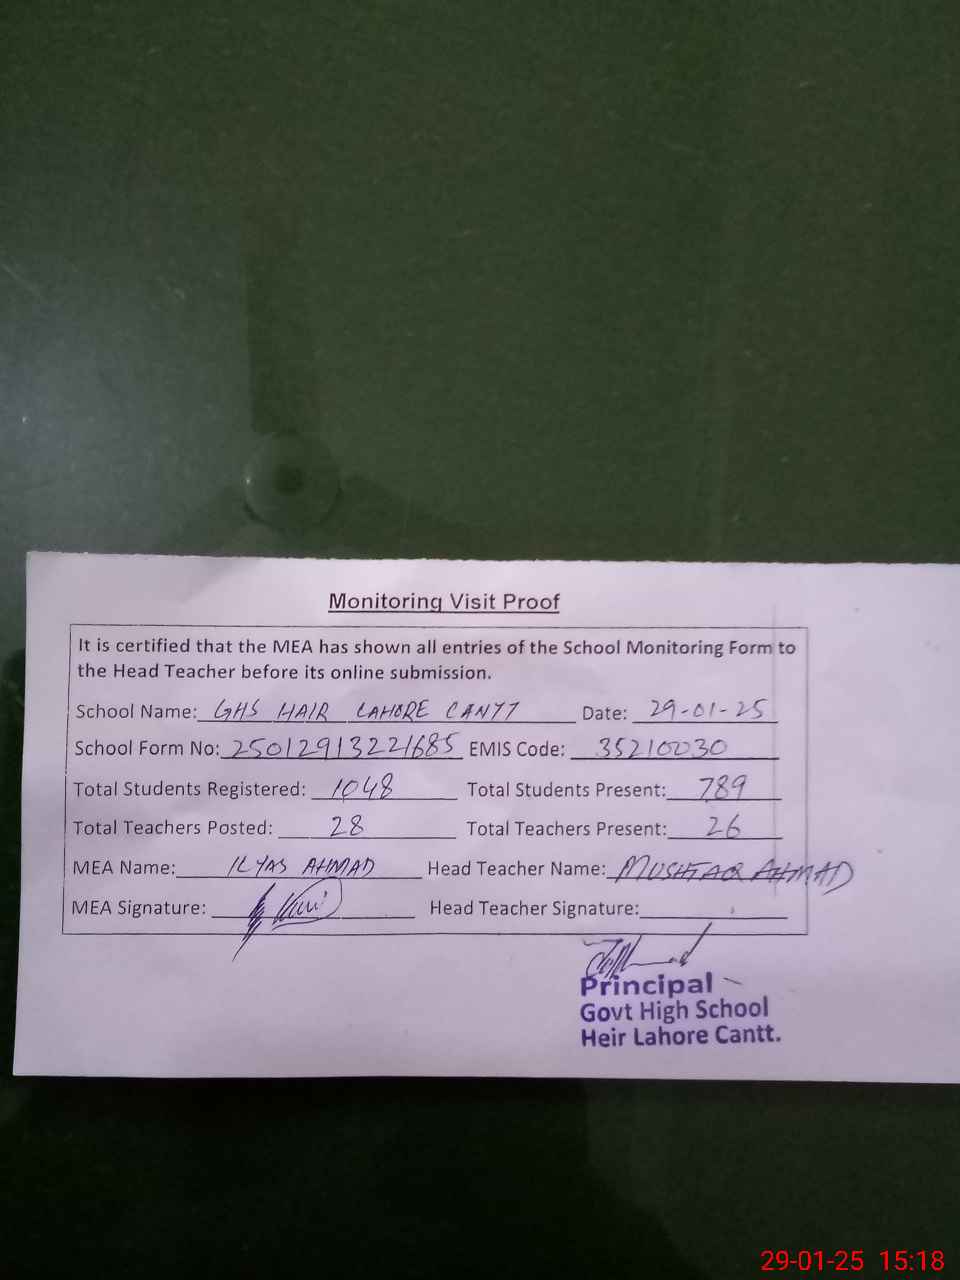 Monitoring Visit Proof
It is certified that the MEA has shown all entries of the School Monitoring Form to
the Head Teacher before its online submission.
School Name: GHS HAIR LAHORE CANTT Date: 29-01-25
School Form No: 25012913221685 EMIS Code: 35210030
Total Students Registered: 1048 Total Students Present: 789
Total Teachers Posted: 28 Total Teachers Present: 26
MEA Name: ILYAS AHMAD Head Teacher Name: MUSHTAQ AHMAD
MEA Signature: Head Teacher Signature:
Principal
Govt High School
Heir Lahore Cantt.
29-01-25 15:18